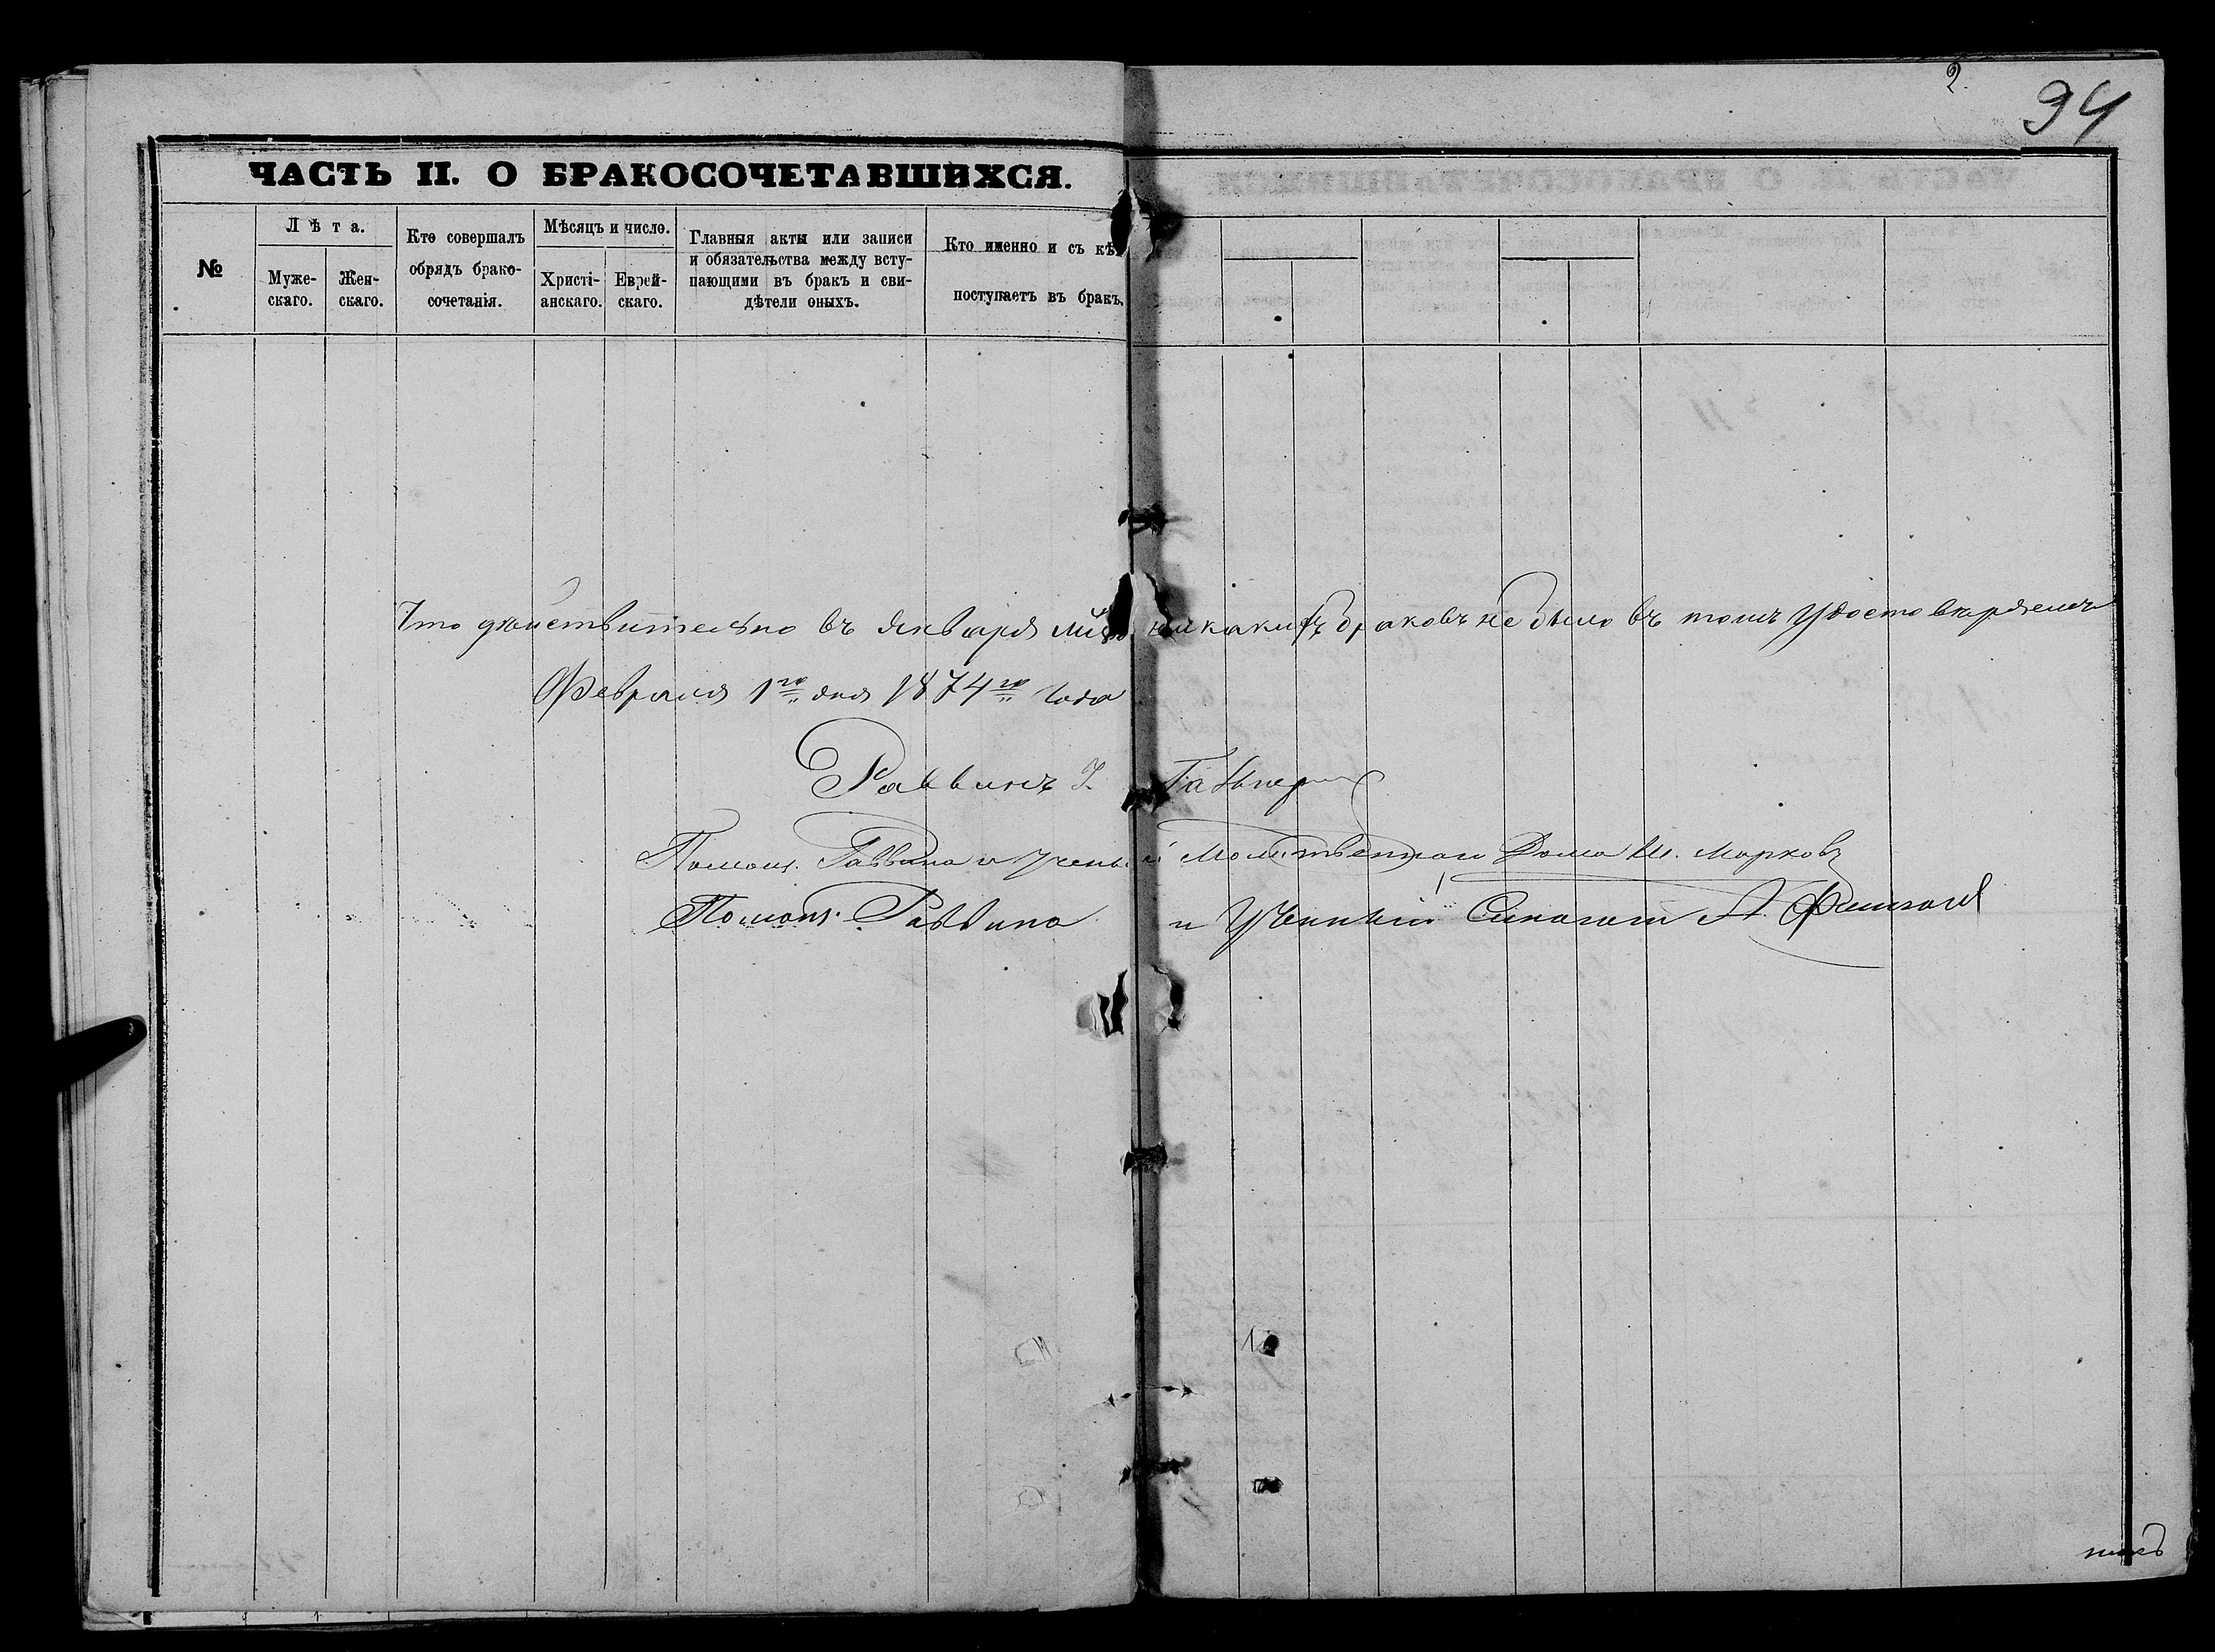 2.
94
ЧАСТЬ II. О БРАКОСОЧЕТАВШИХСЯ.
№
Лѣта.
Муже-
скаго.
Жен-
скаго.
Кто совершалъ
обрядъ брако-
сочетанія.
Мѣсяцъ и число.
Христі-
анскаго.
Еврей-
скаго.
Главныя акты или записи
и обязательства между всту-
пающими въ бракъ и сви-
дѣтели оныхъ.
Кто именно и съ кѣ
поступаетъ въ бракъ.
Что дѣйствительно въ Январѣ м-цѣ никакихъ браковъ не было въ томъ удостовѣряемъ
Февраля 1го дня 1874го Года
Раввинъ Гальпер
Помощ. Раввина и Учены Молитвеннаго Дома Марковъ
Помощ. Раввина и Ученый Синагоги